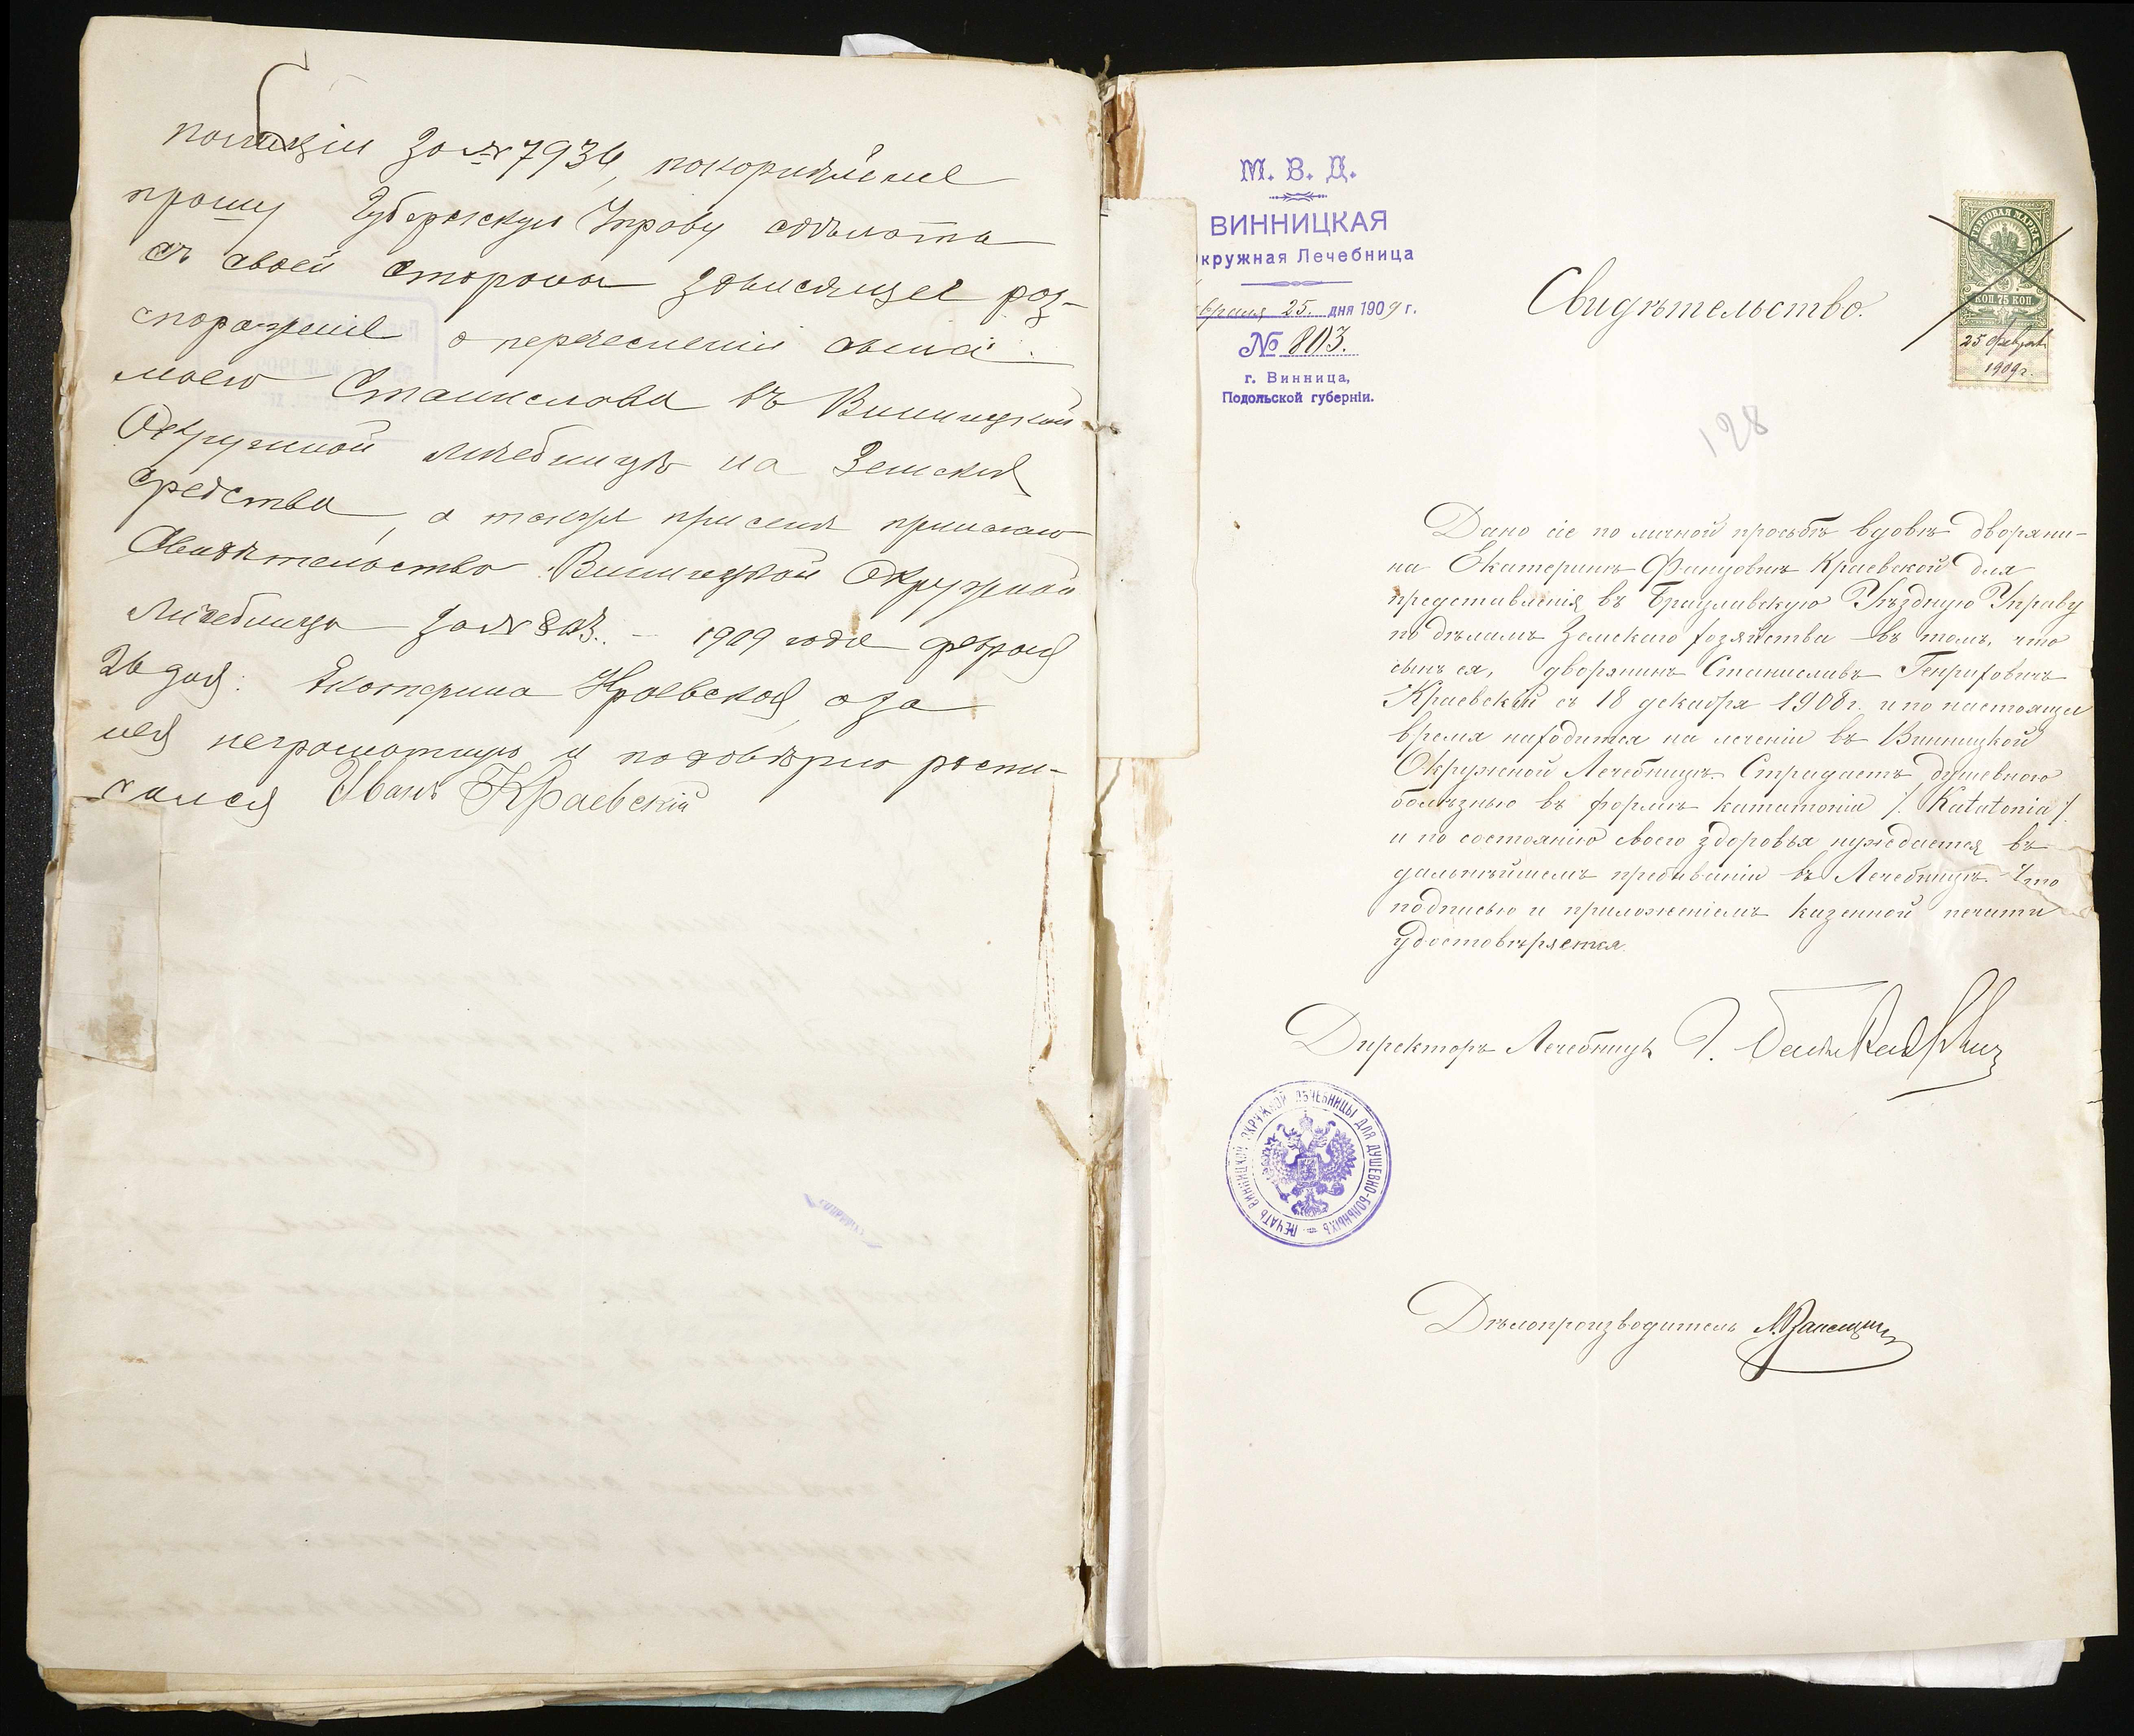 полиціи за № 7934, покорнѣйше
прошу Губернскую Управу сдѣлать
съ своей стороны зависящее раз-
споряженіе о перечесленіи сына
моего Станислава въ Винницкой
Окружной лѣчебницѣ на Земскія
средства, а также при семъ прилагаю
Свидѣтельство Винницкой Окружной
Лѣчебницы за № 803. – 1909 года февраля
26 дня: Екатерина Краевская, а за
нея неграмотную и по довѣрію роспи-
сался Иванъ Краевскій
М. В. Д.
ВИННИЦКАЯ
кружная Лечебница
враля 25. дня 1909 г.
№ 803.
г. Винница,
Подольской губерніи.
ГЕРБОВАЯ МАРКА
КОП. 75 КОП.
25 февраля
1909 г.
Свидѣтельство.
128
Дано сіе по личной просьбѣ вдовѣ дворяни-
на Екатеринѣ Краевской для
представленія въ Брацлавскую Уѣздную Управу
по дѣламъ Земскаго хозяйства въ томъ, что
сынъ ея, дворянинъ Станиславъ Генриховичъ
Краевскій съ 18 декабря 1908 г. и по настоящее
время находится на леченіи въ Винницкой
Окружной Лечебницѣ. Страдаетъ душевною
болѣзнью въ формѣ кататоніи /. Katatonia /.
и по состоянію своего здоровья нуждается въ
дальнѣйшемъ пребываніи въ Лечебницѣ. Что
подписью и приложеніемъ казенной печати
удостовѣряется.
Директоръ Лечебницы
ПЕЧАТЬ ВИННИЦКОЙ ОКРУЖНОЙ ЛѢЧЕБНИЦЫ ДЛЯ ДУШЕВНО-БОЛЬНЫХЪ
Дѣлопроизводитель